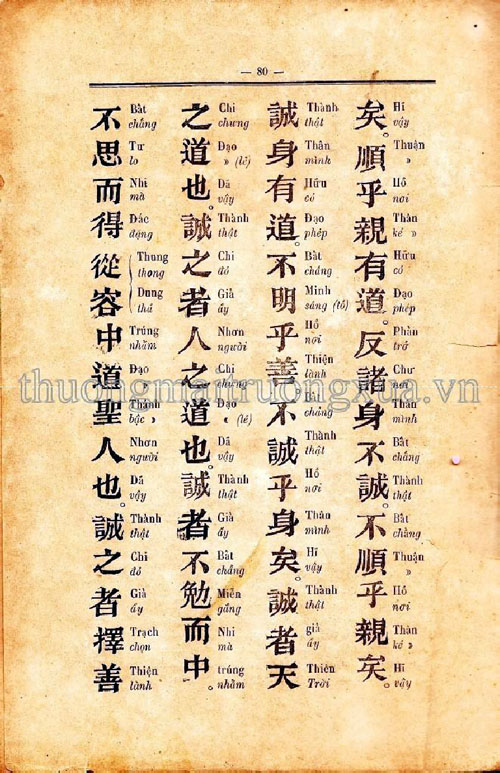 — 80 —
矣。順乎親有道。反諸身不誠。不順乎親矣。
Hi
vậy
Thuận
»
Hồ
nơi
Thân
kẻ »
Hữu
có
Đạo
phép
Phản
trở
Chư
nơi
Thân
mình
Bất
chẳng
Thành
thật
Bất
chẳng
Thuận
»
Hồ
nơi
Thân
kẻ »
Hi
vậy
誠身有道。不明乎善不誠乎身矣。誠者天
Thành
thật
Thân
mình
Hữu
có
Đạo
phép
Bất
chẳng
Minh
sáng (tỏ)
Hồ
nơi
Thiện
lành
Bất
chẳng
Thành
thật
Hồ
nơi
Thân
mình
Hi
vậy
Thành
thật
giả
ấy
Thiên
Trời
之道也。誠之者人之道也。誠者不勉而中。
Chi
chưng
Đạo
» (lẽ)
Dã
vậy
Thành
thật
Chi
đó
Giả
ấy
Nhơn
người
Chi
chưng
Đạo
» (lẽ)
Dã
vậy
Thành
thật
Giả
ấy
Bất
chẳng
Miễn
gắng
Nhi
mà
trúng
nhằm
不思而得從容中道聖人也。誠之者擇善
Bất
chẳng
Tư
lo
Nhi
mà
Đắc
đặng
Thung
thong
Dung
thả
Trúng
nhằm
Đạo
»
Thánh
bậc »
Nhơn
người
Dã
vậy
Thành
thật
Chi
đó
Giả
ấy
Trạch
chọn
Thiện
lành
thuongmaitruongxua.vn